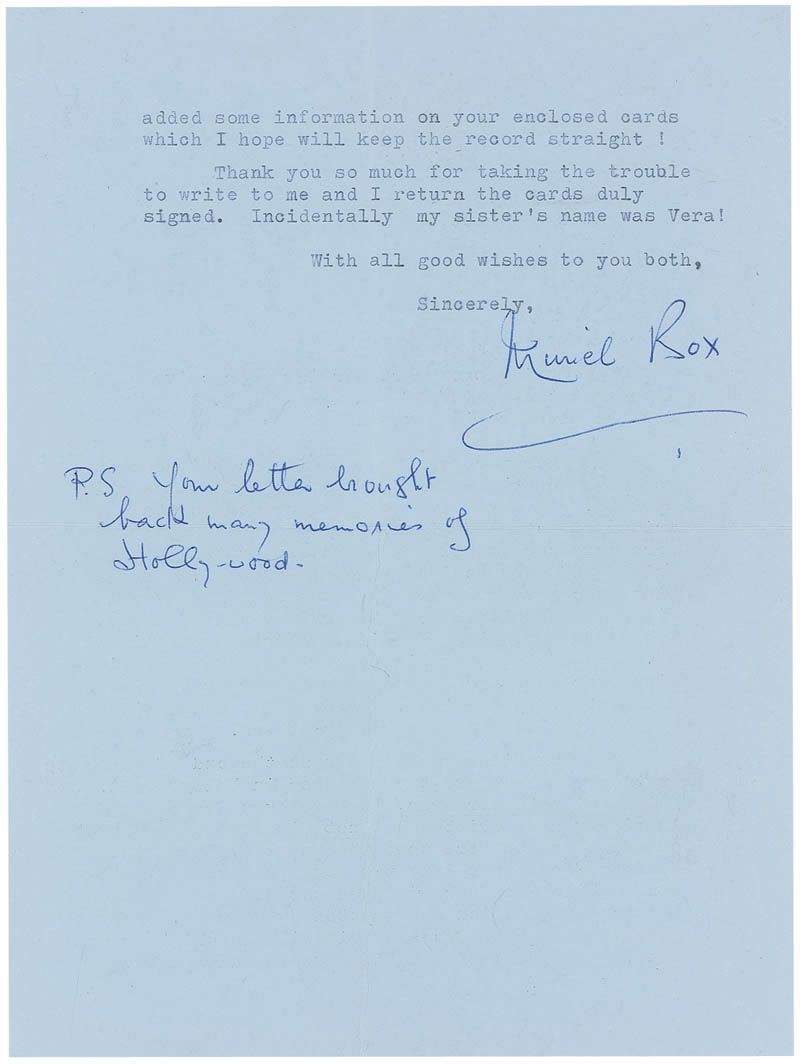 added some information on your enclosed cards
which I hope will keep the record straight !
Thank you so much for taking the trouble
to write to me and I return the cards duly
signed. Incidentally my sister's name was Vera!
With all good wishes to you both,
Sincerely,
Muriel Box
P.S Your letter brought
back many memories of
Holly-wood.